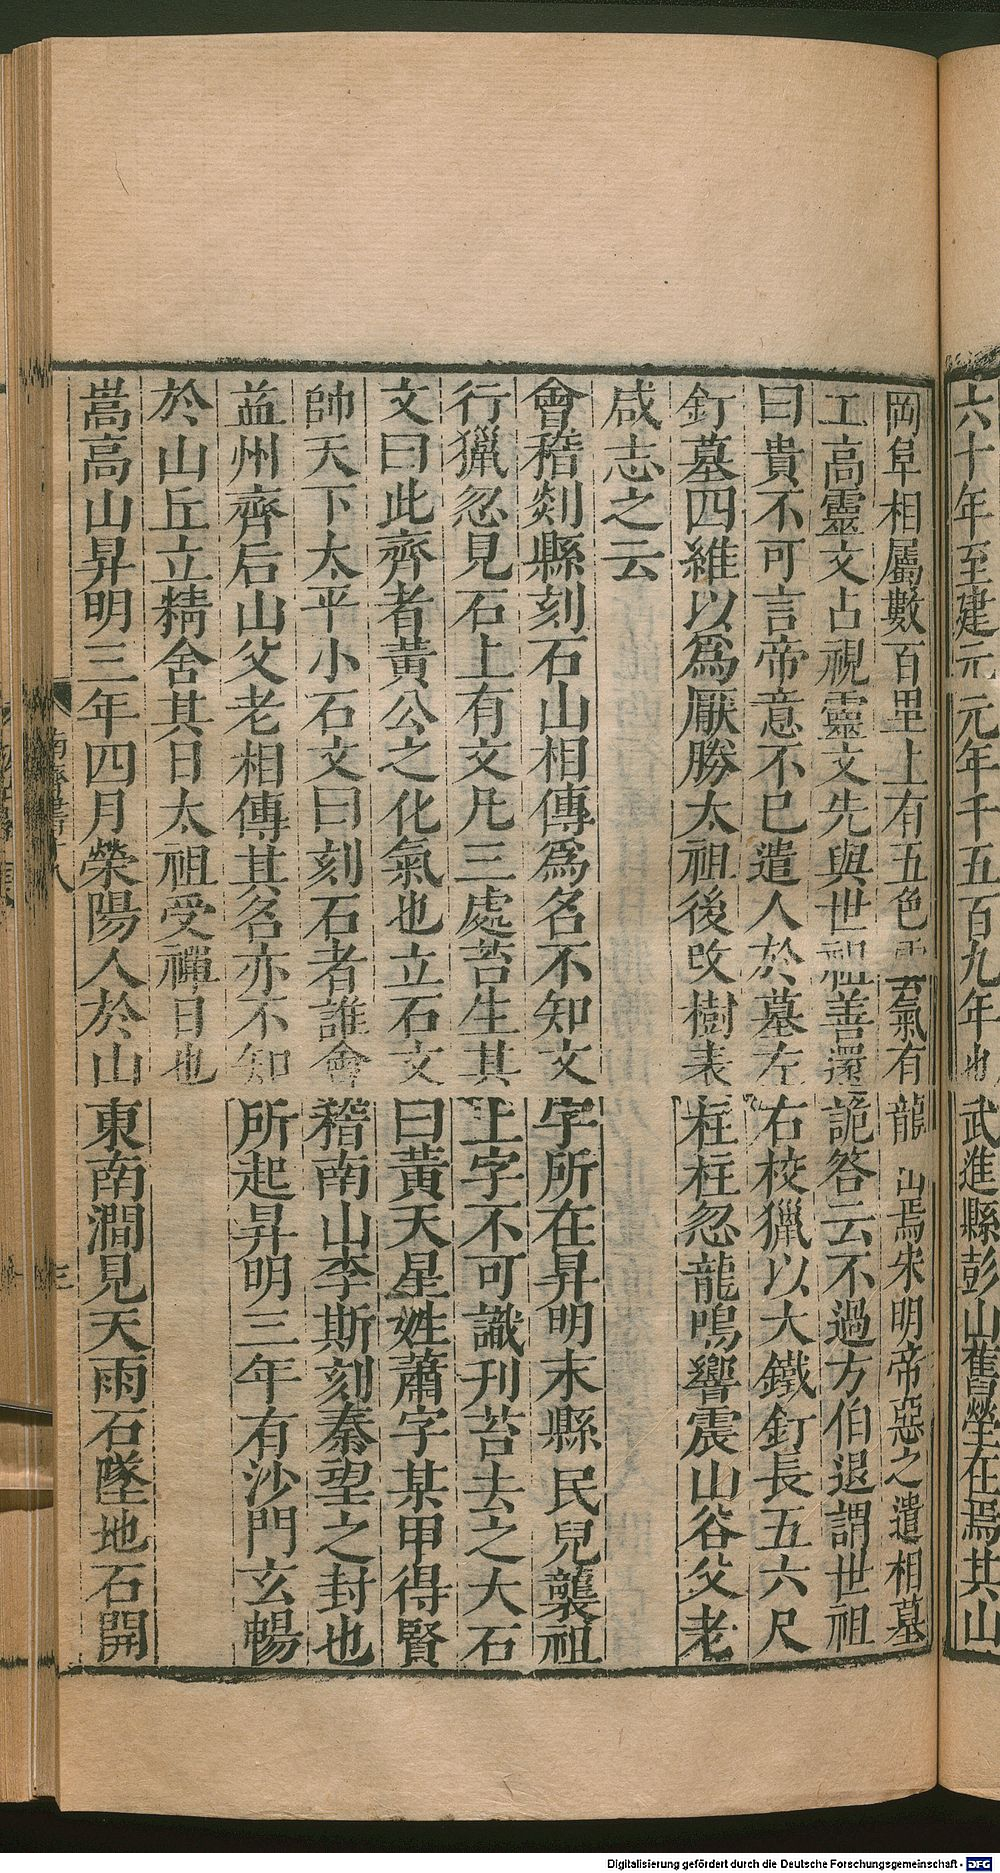 六十年至建元元年千五百九年也武進縣彭山舊塋在焉其山
岡阜相屬數百里上有五色雲氣有龍山焉宋明帝惡之遣相墓
工高靈文占視靈文先與世祖善還詭答云不過方伯退謂世祖
曰貴不可言帝意不已遣人於墓左右校獵以大鐵釘長五六尺
釘墓四維以爲厭勝太祖後改樹表柱柱忽龍鳴響震山谷父老
咸志之云
會稽剡縣刻石山相傳爲名不知文字所在昇明末縣民兒襲祖
行獵忽見石上有文凡三處苔生其上字不可識刊苔去之大石
文曰此齊者黃公之化氣也立石文曰黃天星姓蕭字某甲得賢
帥天下太平小石文曰刻石者誰會稽南山李斯刻秦望之封也
益州齊后山父老相傳其名亦不知所起昇明三年有沙門玄暢
於山丘立精舍其日太祖受禪日也
嵩高山昇明三年四月榮陽人於山東南澗見天雨石墜地石開
南齊書十八
Digitalisierung gefördert durch die Deutsche Forschungsgemeinschaft - DFG